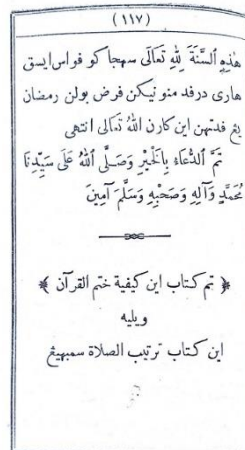 (١١٧)
هٰذِهِ السَّنَةَ لِلّٰهِ تَعَالَى سهجا كو فواس ايسق
هاري درفد منونيكن فرض بولن رمضان
يڠ فدتهن اين كارن اللهُ تَعَالى انتهى
تَمَّ الدُّعَاءُ بِالْخَيْرِ وَصَلَّى اللهُ عَلَى سَيِّدِنَا
مُحَمَّدٍ وَآلِهِ وَصَحْبِهِ وَسَلَّمَ آمِينَ
﴿ تم كتاب اين كيفية ختم القرآن ﴾
ويليه
اين كتاب ترتيب الصلاة سمبهيڠ